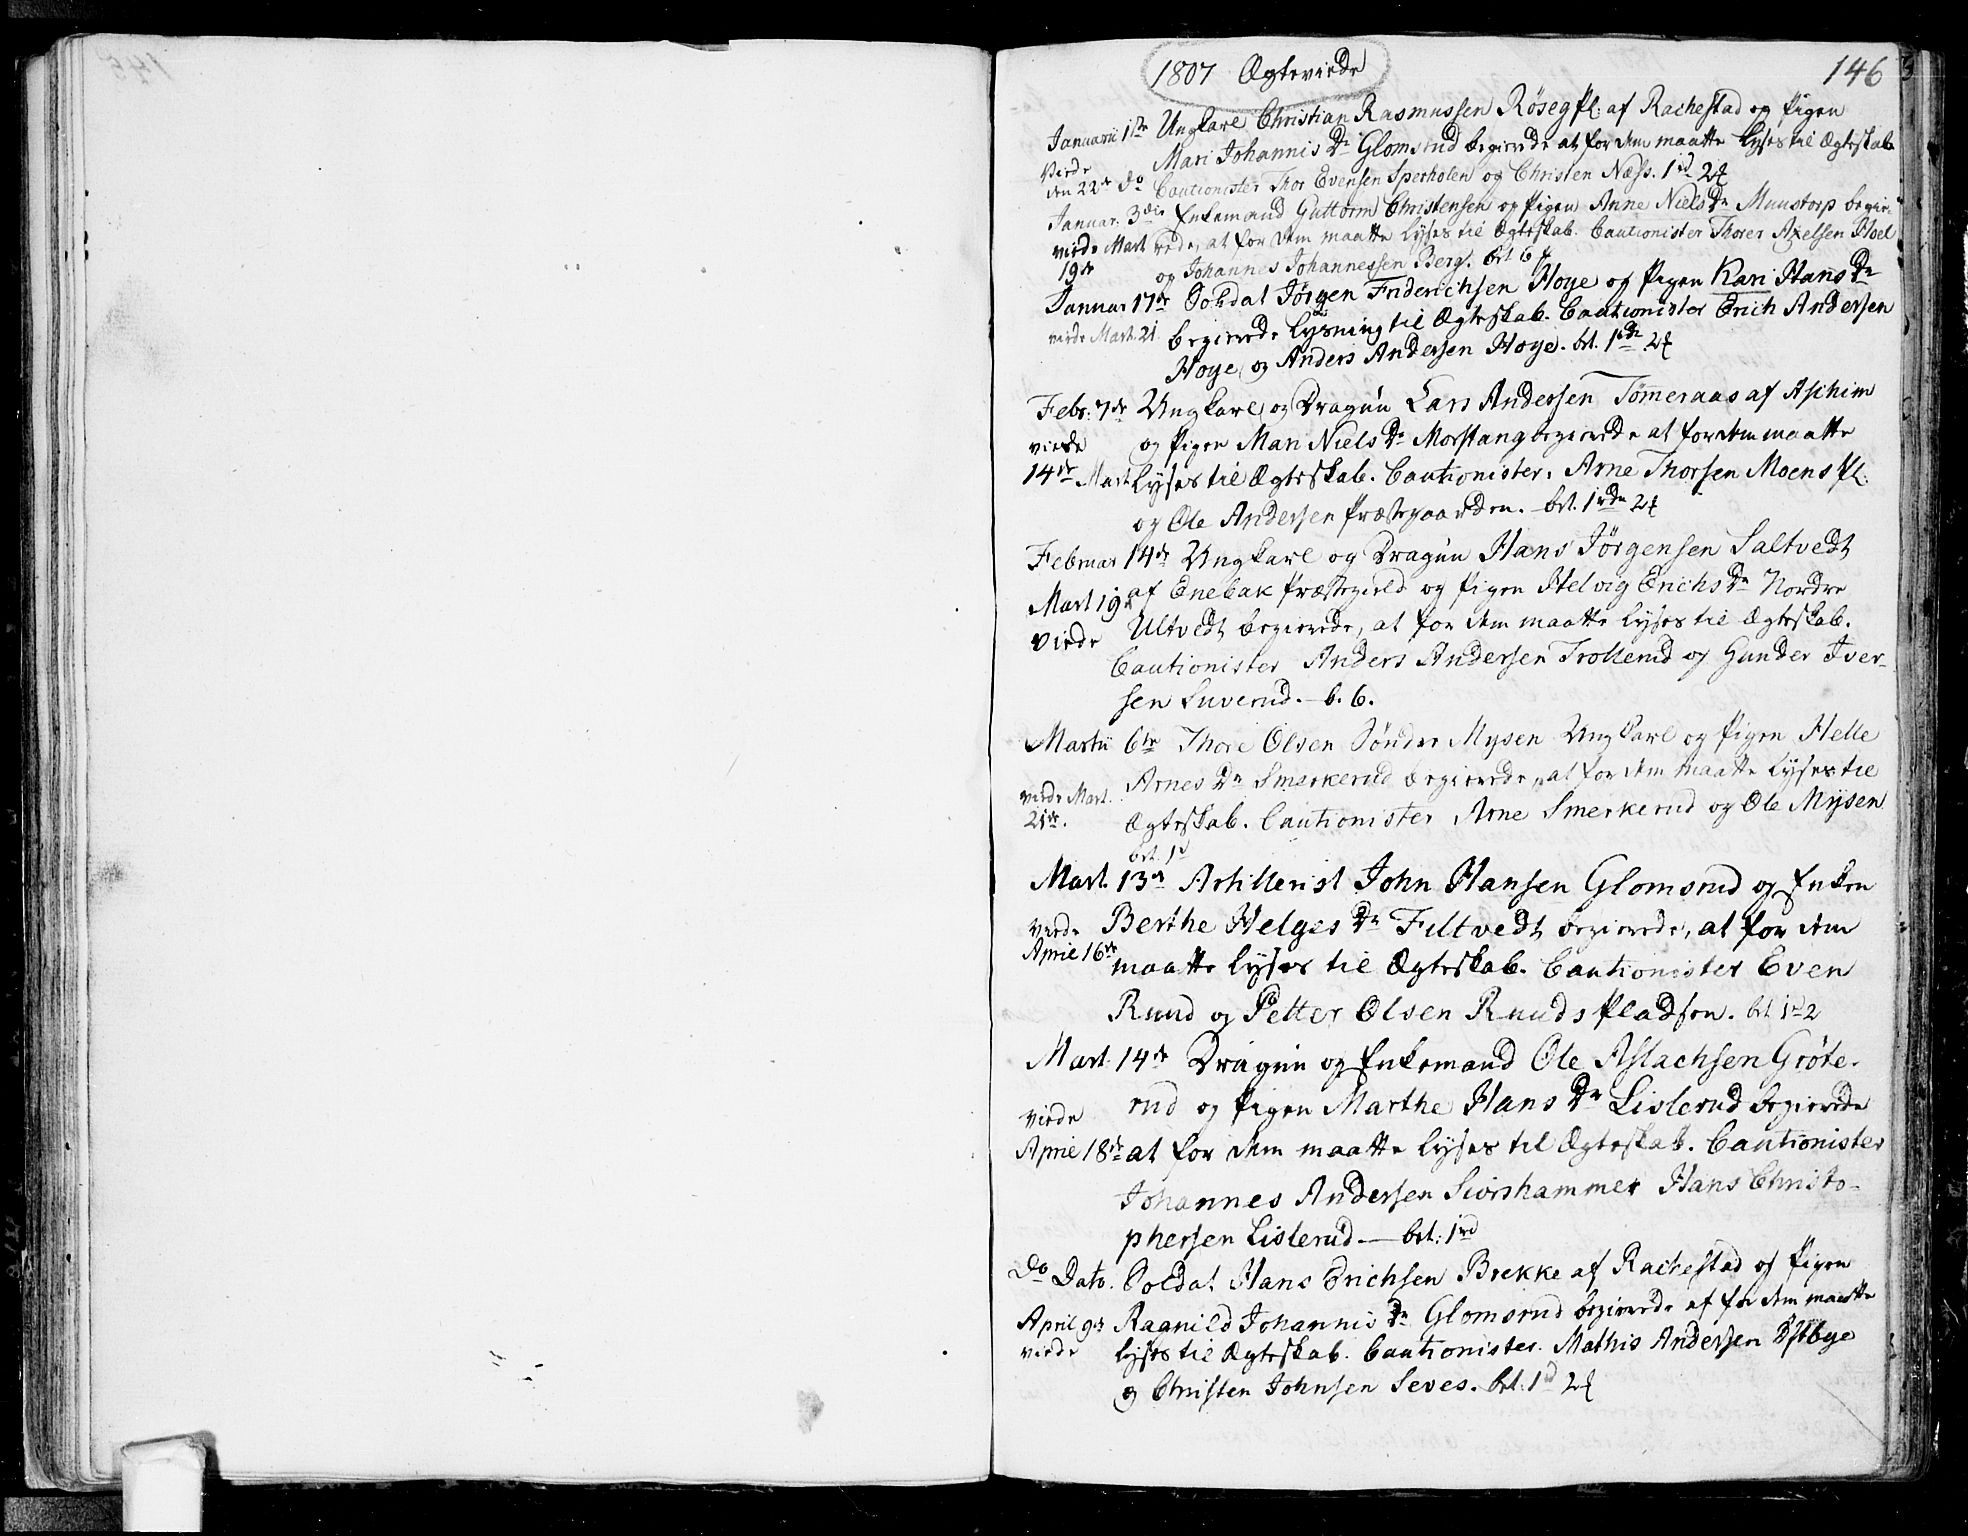 1807 Ægteviede
146
Januarii 1ste Ungkarl Christian Rasmussen Røseg Pl: af Rachestad og Pigen
Mari Johannis Dr Glomsrud begierede at for dem maatte lyses til Ægteskab
Viede
den 22de do Cautionister Thor Evensen Sperholen og Christen Næss. 1rd 2ß
Januar. 3die Enkemand Guttorm Christensen og Pigen Anne Niels Dr Muustorp begie-
viede Mart rede, at for dem maatte lyses til Ægteskab. Cautionister Thorer Axelsen Hoel
19de og Johannes Johannessen Berg. bet 6 ß
Januar 17de Soldat Jørgen Friderichsen Hoye og Pigen Kari Hans Dr
viede Mart. 21 begierede lysning til Ægteskab. Cautionister Erich Andersen
Hoye, og Anders Andersen Hoye. bt. 1rd 2ß
Febr: 7de Ungkarl og Dragun Lars Andersen Tømeraas af Aschim
viede og Pigen Mari Niels Dr Morstang begierede at for dem maatte
14de Mart lyses til Ægteskab. Cautionister. Arne Thorsen Moens Pl:
og Ole Andersen Præstegaarden. bet. 1rd 2ß
Februar 14de Ungkarl og Dragun Hans Jørgensen Saltvedt
Mart 19de af Enebak Præstegield og Pigen Helvig Erichs Dr Nordre
viede Ultvedt begierede, at for dem maatte lyses til Ægteskab.
Cautionister Anders Andersen Trollerud og Gunder Iver-
sen Luverud. b. 6.
Martii 6te Thore Olsen Sønder Mysen Ungkarl og Pigen Helle
Arnes Dr Smerkerud begierede, at for dem maatte lyses til
viede Mart.
21de. Ægteskab. Cautionister Arne Smerkerud og Ole Mysen
bet. 1rd
Mart. 13de Artillerist John Hansen Glomsrud og Enken
viede Berthe Helges Dr Filtvedt begierede, at for dem
April 16de maatte lyses til Ægteskab. Cautionister Even
Ruud og Petter Olsen Ruuds Pladsen. bet 1rd 2
Mart. 14de Dragun og Enkemand Ole Aslachsen Grøte-
viede rud og Pigen Marthe Hans Dr Lislerud begierede
April 18de at for dem maatte lyses til Ægteskab. Cautionister
Johannes Andersen Hans Christo-
phersen Lislerud — bet: 1rd
Do Dato. Soldat Hans Erichsen Brekke af Rachestad og Pigen
April 9de Ragnild Johannis Dr Glomsrud begierede at for dem maatte
viede lyses til Ægteskab. Cautionister. Mathis Andersen Østbye
og Christen Johnsen Seves. bet. 1rd 2ß